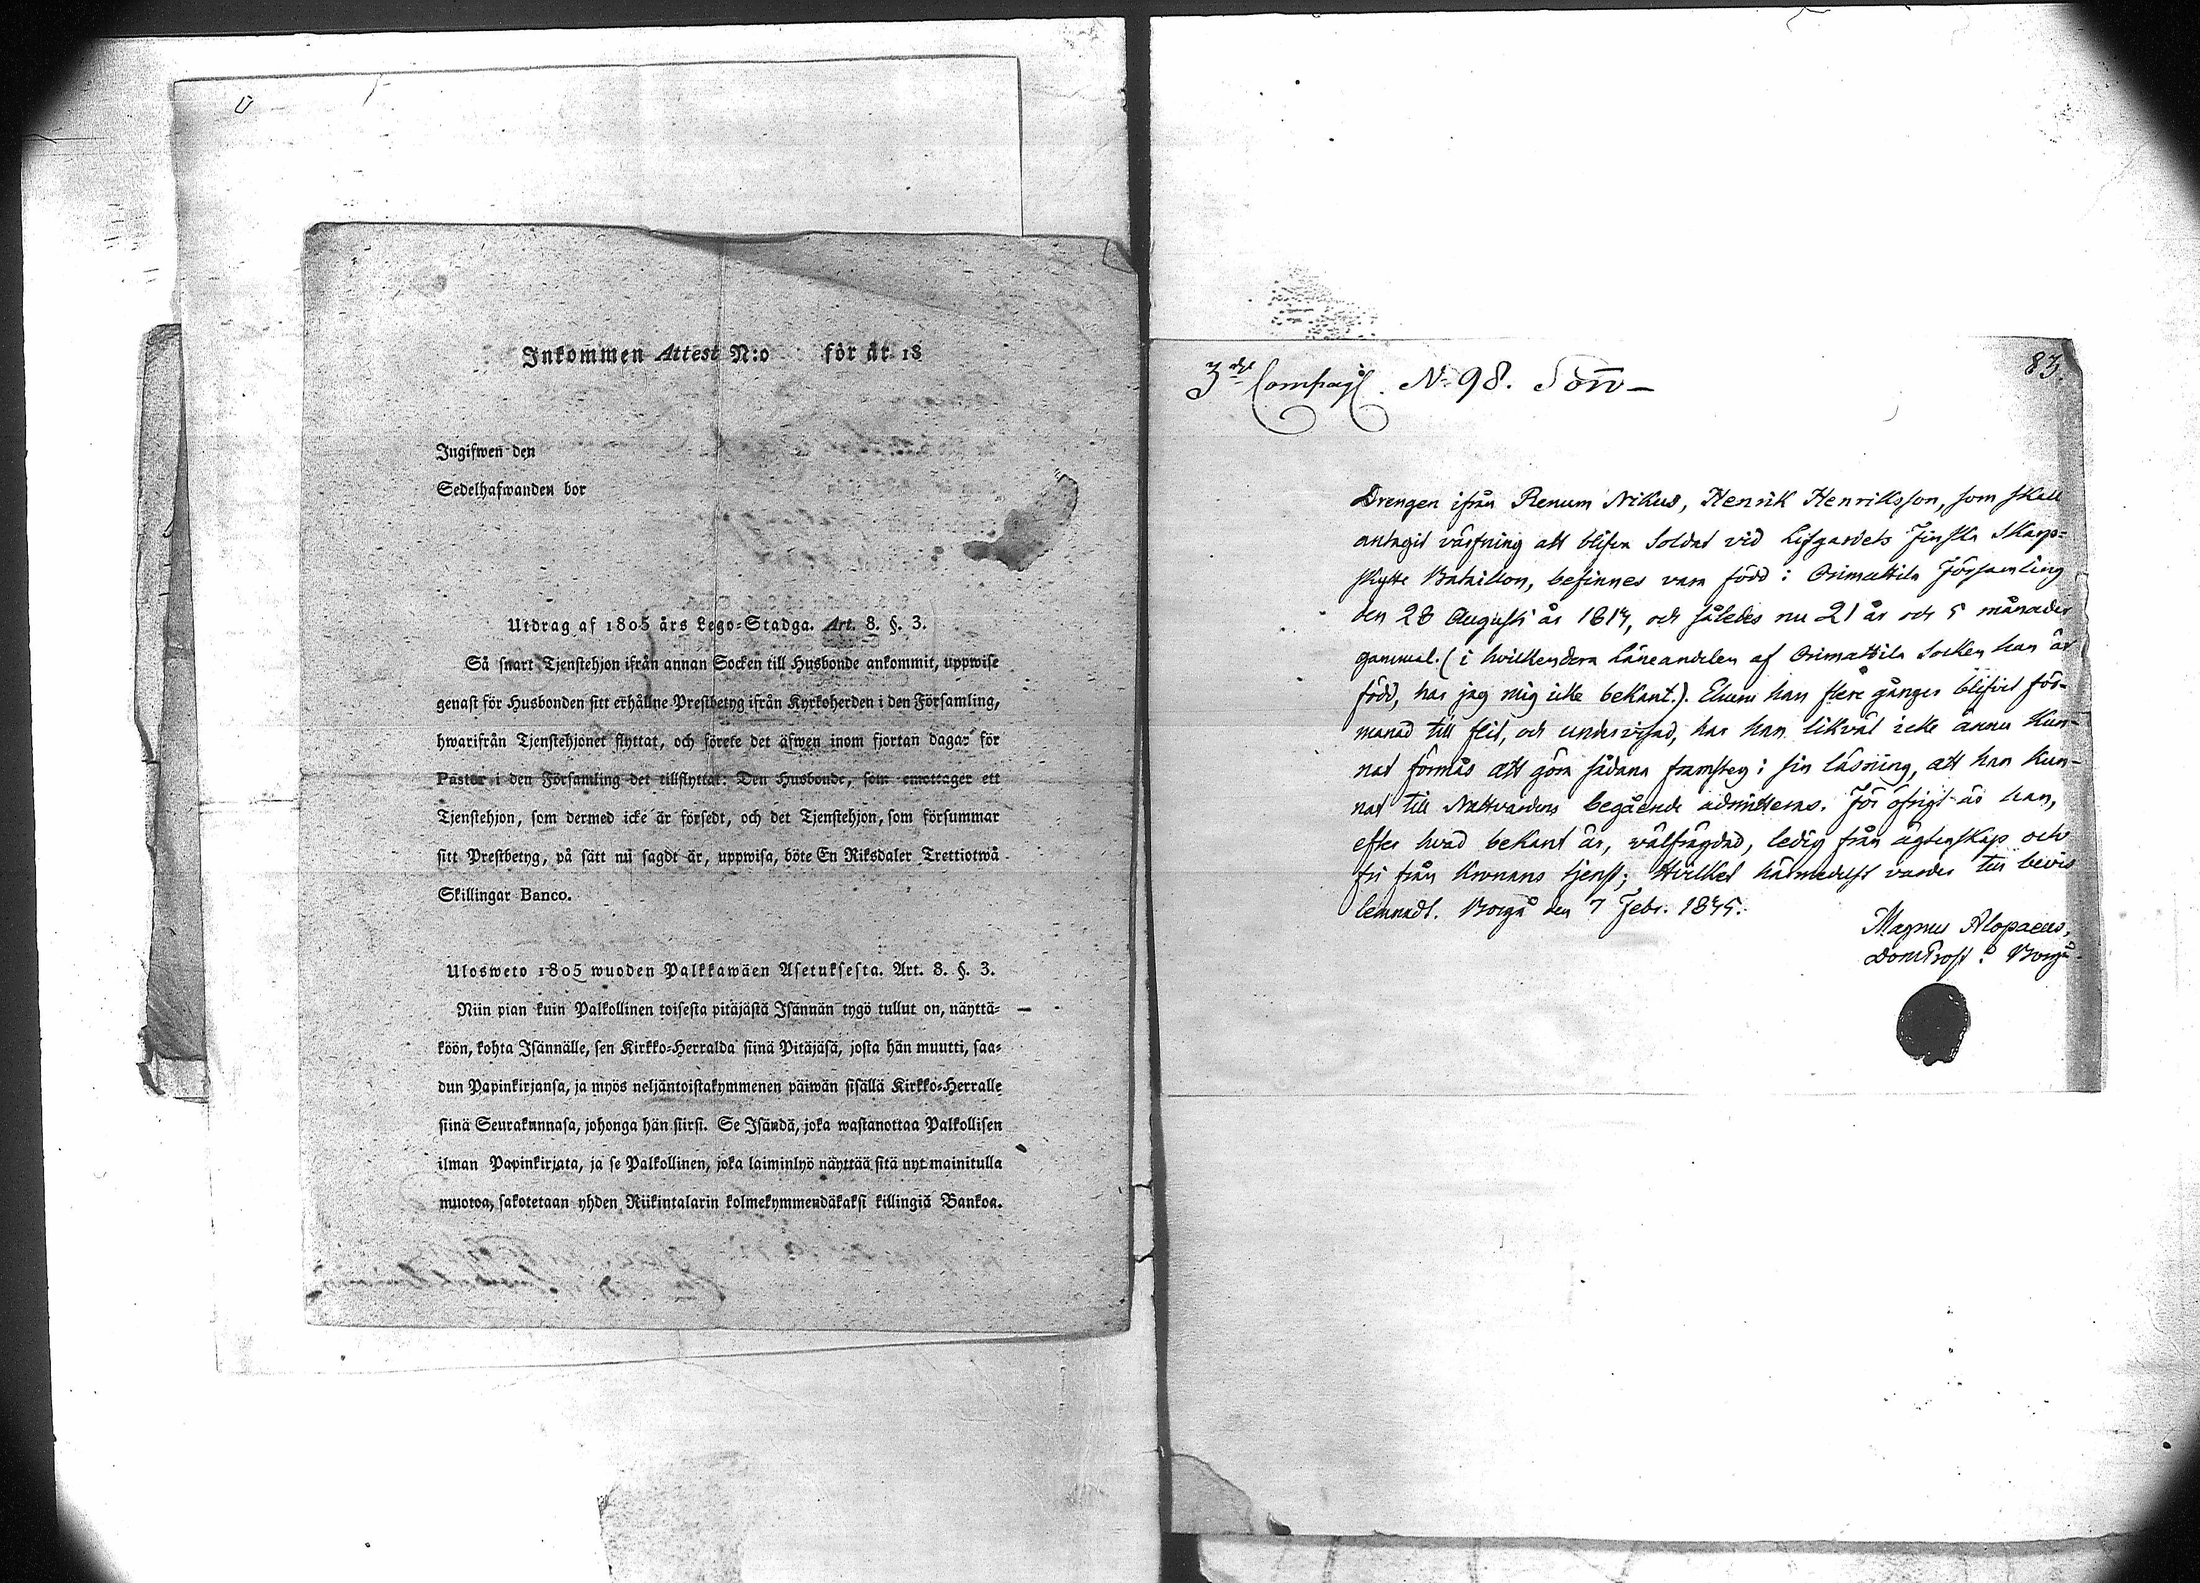 Inkommen Attest N:o för år 18
Ingifwen den
Sedelhafwanden bor
Utdrag af 1805 års Lego-Stadga. Art. 8. §. 3.
Så snart Tjenstehjon ifrån annan Socken till Husbonde ankommit, uppwise
genast för Husbonden sitt erhållne Prestbetyg ifrån Kyrkoherden i den Församling,
hwarifrån Tjenstehjonet flyttat, och förete det äfwen inom fjortan dagar för
Pastor i den Församling det tillflyttat: Den Husbonde, som emottager ett
Tjenstehjon, som dermed icke är försedt, och det Tjenstehjon, som försummar
sitt Prestbetyg, på sätt nu sagdt är, uppwisa, böte En Riksdaler Trettiotwå
Skillingar Banco.
Ulosweto 1805 wuoden Palkkawäen Asetuksesta. Art. 8. §. 3.
Niin pian kuin Palkollinen toisesta pitäjästä Isännän tygö tullut on, näyttä-
köön, kohta Isännälle, sen Kirkko-Herralda siinä Pitäjäsä, josta hän muutti, saa-
dun Papinkirjansa, ja myös neljäntoistakymmenen päiwän sisällä Kirkko-Herralle
siinä Seurakunnasa, johonga hän siirsi. Se Isändä, joka wastanottaa Palkollisen
ilman Papinkirjata, ja se Palkollinen, joka laiminlyö näyttää sitä nyt mainitulla
muotoa, sakotetaan yhden Riikintalarin kolmekymmendäkaksi killingiä Bankoa.
83.
3dje Compagt. No 98. Sönn
Drengen ifrån Renum Nikus, Henrik Henriksson, som skall
antagit värfning att blifva Soldat vid Lifgardets Finska Skarp-
skytte Bataillon, befinnes vara född i Orimattila Församling
den 28 Augusti år 1814, och således nu 21 år och 5 månader
gammal. (i hvilkendera Läneandelen af Orimattila Socken han är
född, har jag mig icke bekant.). Ehuru han flere gånger blifvit för-
manad till flit, och undervisad, har han likväl icke ännu kun-
nat förmås att göra sådana framsteg i sin läsning, att han kun-
nat till Nattvardens begående admitteras. För öfrigt är han,
efter hvad bekant är, välfrägdad, ledig från ägtenskap och
fri från Kronans tjenst; Hvilket härmedelst varder till bevis
lemnadt. Borgå den 7 Febr. 1845.
Magnus Alopaeus,
DomProst i Borgå.